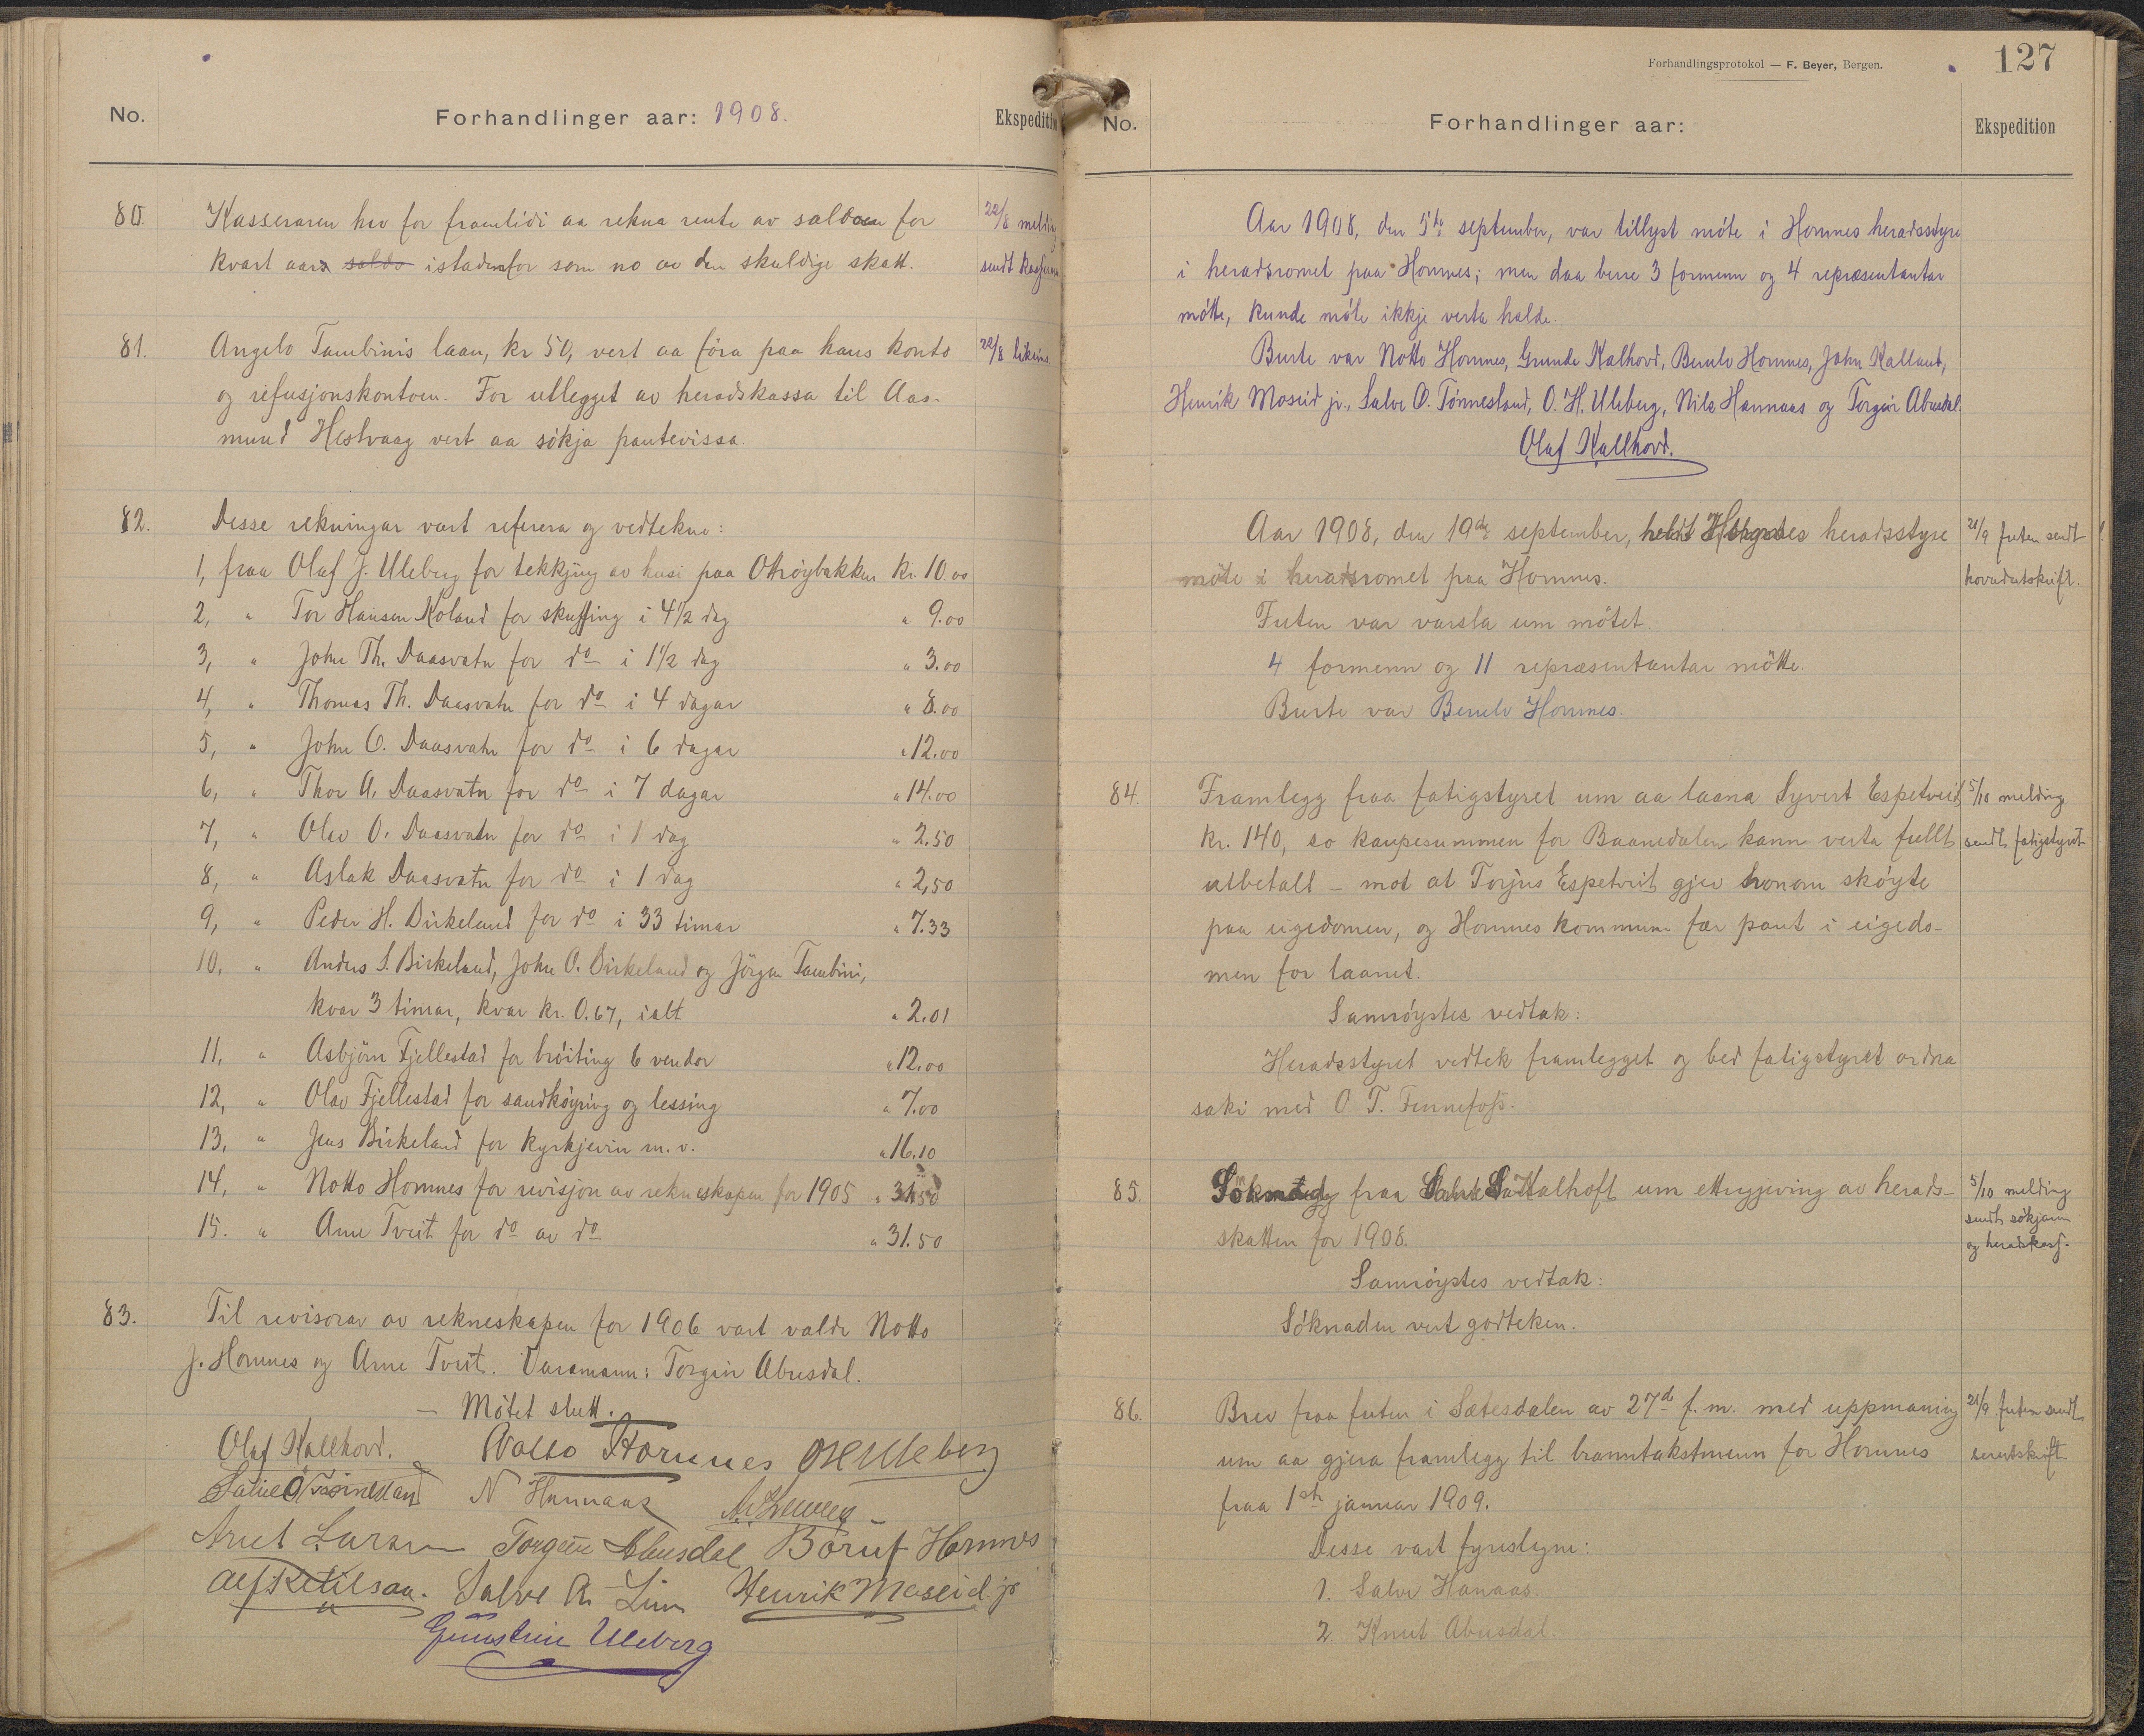 No.
Forhandlinger aar: 1908.
Ekspedition
80. Kasseraren hev for framtidi aa rekna rente av saldoen for 22/8 melding
kvart aar saldo istadenfor som no av den skuldige skatt. sendt kasseraren
81. Angelo Tambinis laan, kr 50, vert aa föra paa hans konto 22/8 likeins
og refusjonskontoen. For utlegget av heradskassa til Aas-
mund Hestvaag vert aa sökja pantevissa.
82. Desse rekningar vart referera og vedtekne:
1, fraa Olaf J. Uleberg for tekkjing av husi paa Otröybakken kr. 10.00
2, " Tor Hansen Moland for skuffing i 4 1/2 dag " 9.00
3, " John Th. Daasvatn for do i 1 1/2 dag " 3.00
4, " Thomas Th. Daasvatn for do i 4 dagar " 8.00
5, " John O. Daasvatn for do i 6 dagar " 12.00
6, " Thor A. Daasvatn for do i 7 dagar " 14.00
7, " Olav O. Daasvatn for do i 1 dag " 2.50
8, " Aslak Daasvatn for do i 1 dag " 2,50
9, " Peder H. Birkeland for do i 33 timar " 7.33
10, " Anders S. Birkeland, John O. Birkeland og Jörgen Tambini,
kvar 3 timar, kvar kr. 0.67, ialt " 2.01
11, " Asbjörn Fjellestad for bröiting 6 vendor " 12.00
12, " Olav Fjellestad for sandköyring og lessing " 7.00
13, " Jens Birkeland for kyrkjevin m. v. " 16.10
14, " Notto Hornnes for revisjon av rekneskapen for 1905 " 31.50
15. " Arne Tveit for do av do " 31.50
83. Til revisorar av rekneskapen for 1906 vart valde Notto
J. Hornnes og Arne Tveit. Varamann: Torgeir Abusdal.
- Mötet slutt.
Olaf Kallhovd. Notto Hornnes O H Uleberg
Salve O Tönnesland N Hannaas
Torgeir Abusdal Hornnes
Alf Ketilsaa. Salve A. Lien Henrik Moseid. jr
Gunstein Uleberg
Forhandlingsprotokol — F. Beyer, Bergen.
127
No.
Forhandlinger aar:
Ekspedition
Aar 1908, den 5te september, var tillyst möte i Hornnes heradsstyre
i heradsromet paa Hornnes; men daa berre 3 formenn og 4 representantar
mötte, kunde möte ikkje verta halde.
Burte var Notto Hornnes, Gunde Kalhovd, Berulv Hornnes, John Kalland,
Henrik Moseid jr., Salve O. Tönnesland, O. H. Uleberg, Nils Hannaas og Torgeir Abusdal.
Olaf Kallhovd.
Aar 1908, den 19de september, heldt Hornnes heradsstyre 21/9 futen sendt
möte i heradsromet paa Hornnes. hovudutskrift.
Futen var varsla um mötet.
4 formenn og 11 representantar mötte.
Burte var Berulv Hornnes.
84. Framlegg fraa fatigstyret um aa laana Syvert Espetveit 5/10 melding
kr. 140, so kaupesummen for Baanedalen kann verta fullt sendt fatigstyret
utbetalt – mot at Torjus Espetveit gjev honom sköyte
paa eigedomen, og Hornnes kommune fær pant i eigedo-
men for laanet.
Samröystes vedtak:
Heradsstyret vedtek framlegget og bed fatigstyret ordna
saki med O. T. Fennefoss.
85. fraa um ettergjeving av herads- 5/10 melding
skatten for 1908. sendt sökjaren
og heradskass.
Samröystes vedtak:
Söknaden vert godteken.
86. Brev fraa futen i Sætesdalen av 27d f. m. med uppmaning 21/9 futen sendt
um aa gjera framlegg til branntakstmenn for Hornnes serutskrift
fraa 1ste januar 1909.
Desse vart fyreslegne:
1. Salve Hanaas.
2. Knut Abusdal.